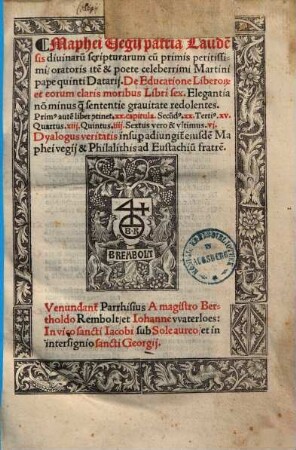 Maphei Uegij patria Lauden
sis diuinarū scripturarum cū primis peritissi-
mi: oratoris itē & poete celeberrimi Martini
pape quinti Datarij. De Educatione Liberorū
et eorum claris moribus Libri sex. Elegantia
nō minus q̄ sententie grauitate redolentes.
Primꝰ autē liber ↄtinet .xx. capitula. Secūdꝰ .xx. Tertiꝰ .xv.
Quartus .xiij. Quintus .iiij. Sextus vero & vltimus .vj.
Dyalogus veritatis insup adiungit̄ eiusdē Ma
phei vegij & Philalithis ad Eustachiū fratrē.
B R
REMBOLT
Venundant̄ Parrhisius A magistro Ber
tholdo Rembolt: et Iohanne vvaterloes:
In vico sancti Iacobi sub Sole aureo: et in
intersignio sancti Georgij.